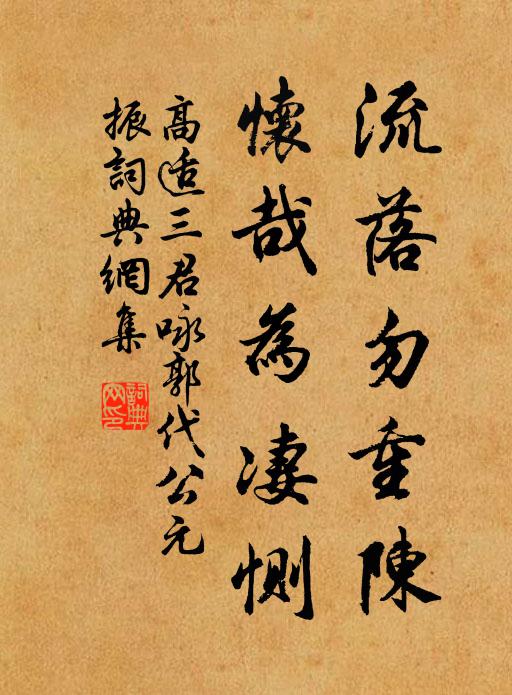 流落勿重陳
懷哉為淒惻
高适三君咏郭代公元
振詞典網集
詞典网印